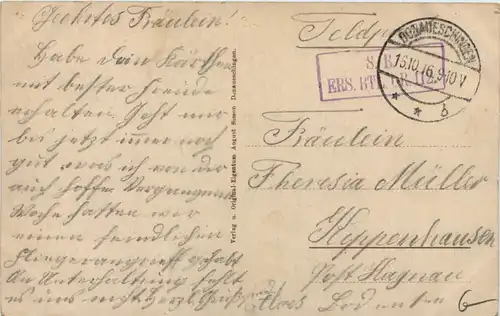 Geehrtes Fräulein!
Habe Dein Kärtchen
mit bester Freude
erhalten. Geht mir
bis jetzt immer noch
gut, was ich von dir
auch hoffe. Vergangene
Woche hatten wir
einen feindlichen
Fliegerangriff gehabt
An Unterhaltung fehlt
es uns nicht. Herzl. Grüße
Aloes
Verlag u. Original-Eigentum August Simon Donaueschingen.
Feldpost
S. B.
ERS. BTL.
DONAUESCHINGEN
13.10.16.9-10 V
* * b
Fräulein
Theresia Müller
Keppenhausen
Post Hagnau
Bodensee
6